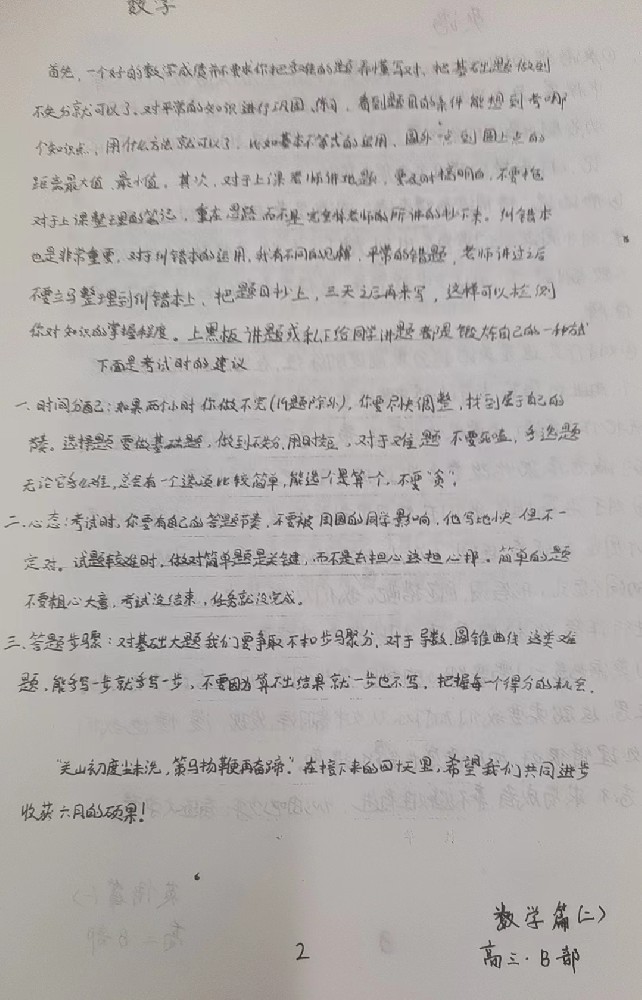 数学
首先，一个好的数学成绩并不要求你把多难的题弄懂写对、把基础题做到
不失分就可以了、对平常的知识进行巩固、练习，看到题目的条件能想到考哪
个知识点，用什么方法就可以了，比如基本不等式的运用、圆外一点到圆上点的
距离最大值、最小值。其次，对于上课老师讲地题，要及时搞明白，不要拖
对于上课整理的笔记，重在思路而不是完整将老师的所讲的抄下来。纠错本
也是非常重要，对于纠错本的运用，我有不同的见解，平常的错题，老师讲过之后
不要立马整理到纠错本上、把题目抄上，三天之后再来写，这样可以检测
你对知识的掌握程度。上黑板讲题或私下给同学讲题都是锻炼自己的一种方式
下面是考试时的建议
一、时间分配：如果两个小时你做不完(19题除外)，你要尽快调整，找到属于自己的
节奏。选择题要做基础题，做到不失分，用时短，对于难题不要死嗑，多选题
无论它多么难，总会有一个选项比较简单，能选一个是算一个，不要"贪"。
二、心态：考试时，你要有自己的答题节奏，不要被周围的同学影响，他写地快但不一
定对。试题较难时，做对简单题是关键，而不是去担心这担心那。简单的题
不要粗心大意，考试没结束，任务就没完成。
三、答题步骤：对基础大题我们要争取不扣步骤分，对于导数、圆锥曲线这类难
题，能多写一步就多写一步，不要因为算不出结果就一步也不写，把握每一个得分的机会。
"关山初度尘未洗，策马扬鞭再奋蹄。"在接下来的四十天里，希望我们共同进步
收获六月的硕果！
数学篇(二)
2
高三·B部